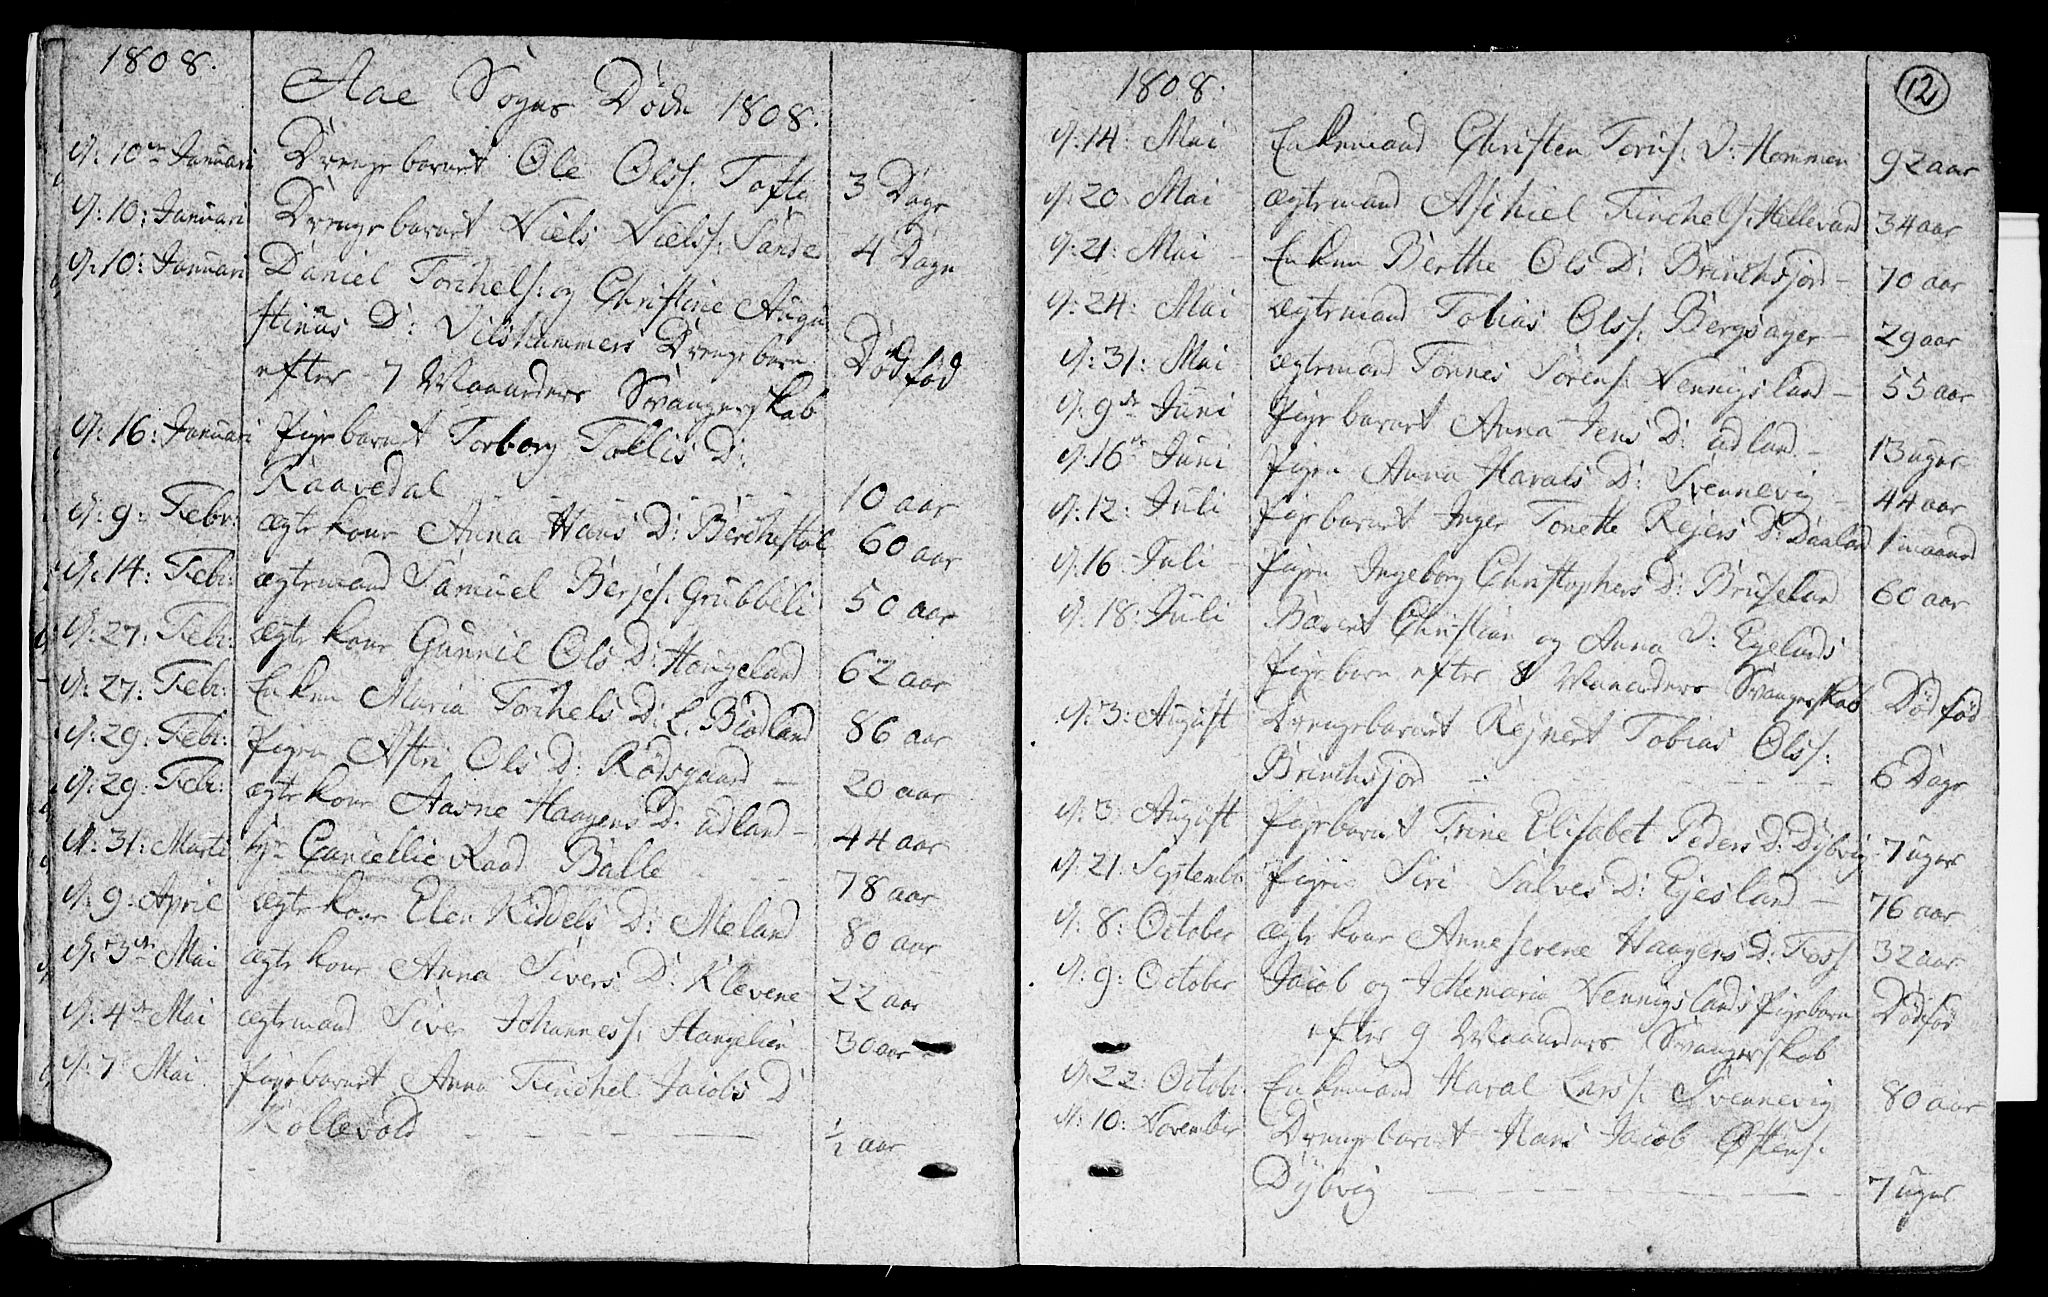 1808.
Aae Sogns Døde 1808.
d: 10de Januari Drengebarnet Ole Olss: Tofte 3 Dage
d: 10: Januari Drengebarnet Niels Nielss: Sande 4 Dage
d: 10: Januari Daniel Torchels: og Christine Augu
stinus D: Vilshammers Drengebarn
efter 7 Maaneders Svangerskab Død fød
d: 16: Januari Pigebarnet Torborg Tollis D:
Raavedal - - - - 10 aar
d: 9: Febr: ægtekone Anna Hans D: Berchestøl 60 aar
d: 14: Febr: ægtemand Samuel Berjes: Grubbeli 50 aar
d: 27: Febr: ægtekone Gunnil Ols D: Haugeland 62 aar
d: 27: Febr: Enken Maria Torchels D: L. Biodland 86 aar
d: 29: Febr: Pigen Astri Ols D: Rødsgaard - 20 aar
d: 29: Febr: ægtekone Aasne Haagens D: udland - 44 aar
d: 31: Marti hr Cancellie Raad Balle - - - 78 aar
d: 9: April ægtekone Elen Kiddels D: Meland 80 aar
d: 3de Mai ægtekone Anna Sivers D: Klevene 22 aar
d: 4de Mai ægtemand Siver Johanness: Haugelien 30 aar
d: 7de Mai Pigebarnet Anna Tenchel Jacobs D
Kollevold - - - - - 1/2 aar
1808.
12
d: 14: Mai Enkemand Christen Torus: V: Hommen 92 aar
d: 20: Mai ægtemand Aschiel Tenchels: Hellevand 34 aar
d: 21: Mai - Enken Berthe Ols D: Brinchsjord - 70 aar
d: 24: Mai ægtemand Tobias Olss: Bergsager - 29 aar
d: 31: Mai ægtemand Tønnes Sørens: Vennigsland - 55 aar
d: 9de Juni Pigebarnet Anna Jens D: udland - 13 uger
d: 16de Juni Pigen Anna Harals D: Svennevig - 44 aar
d: 12: Juli Pigebarnet Inger Tonette Rejers D: Daaland 1 maaned
d: 16: Juli - Pigen Ingeborg Christophers D: Bruseland 60 aar
d: 18: Juli Bærent Christian og Anna D: Egelands
Pigebarn efter 8 Maaneders Svangerskab Død fød
d: 3: August Drengebarnet Rejnert Tobias Olss:
Brinchsjord - - - - - 6 Dage
d: 3: August Pigebarnet Trine Elisabet Peders D: Dybvig 7 uger
d: 21: Septembr Pigen Siri Salves D: Ejesland - 76 aar
d: 8: October ægtekone Anne Serene Haagens D: Foss: 32 aar
d: 9: October Jacob og Ellemaria Vennigslands Pigebarn
efter 9 Maaneders Svangerskab Dødfød
d: 22: Octobr Enkemand Haral Larss: Svennevig 80 aar
d: 10: November Drengebarnet Hans Jacob Østens:
Dybvig - - - - - 7 uger